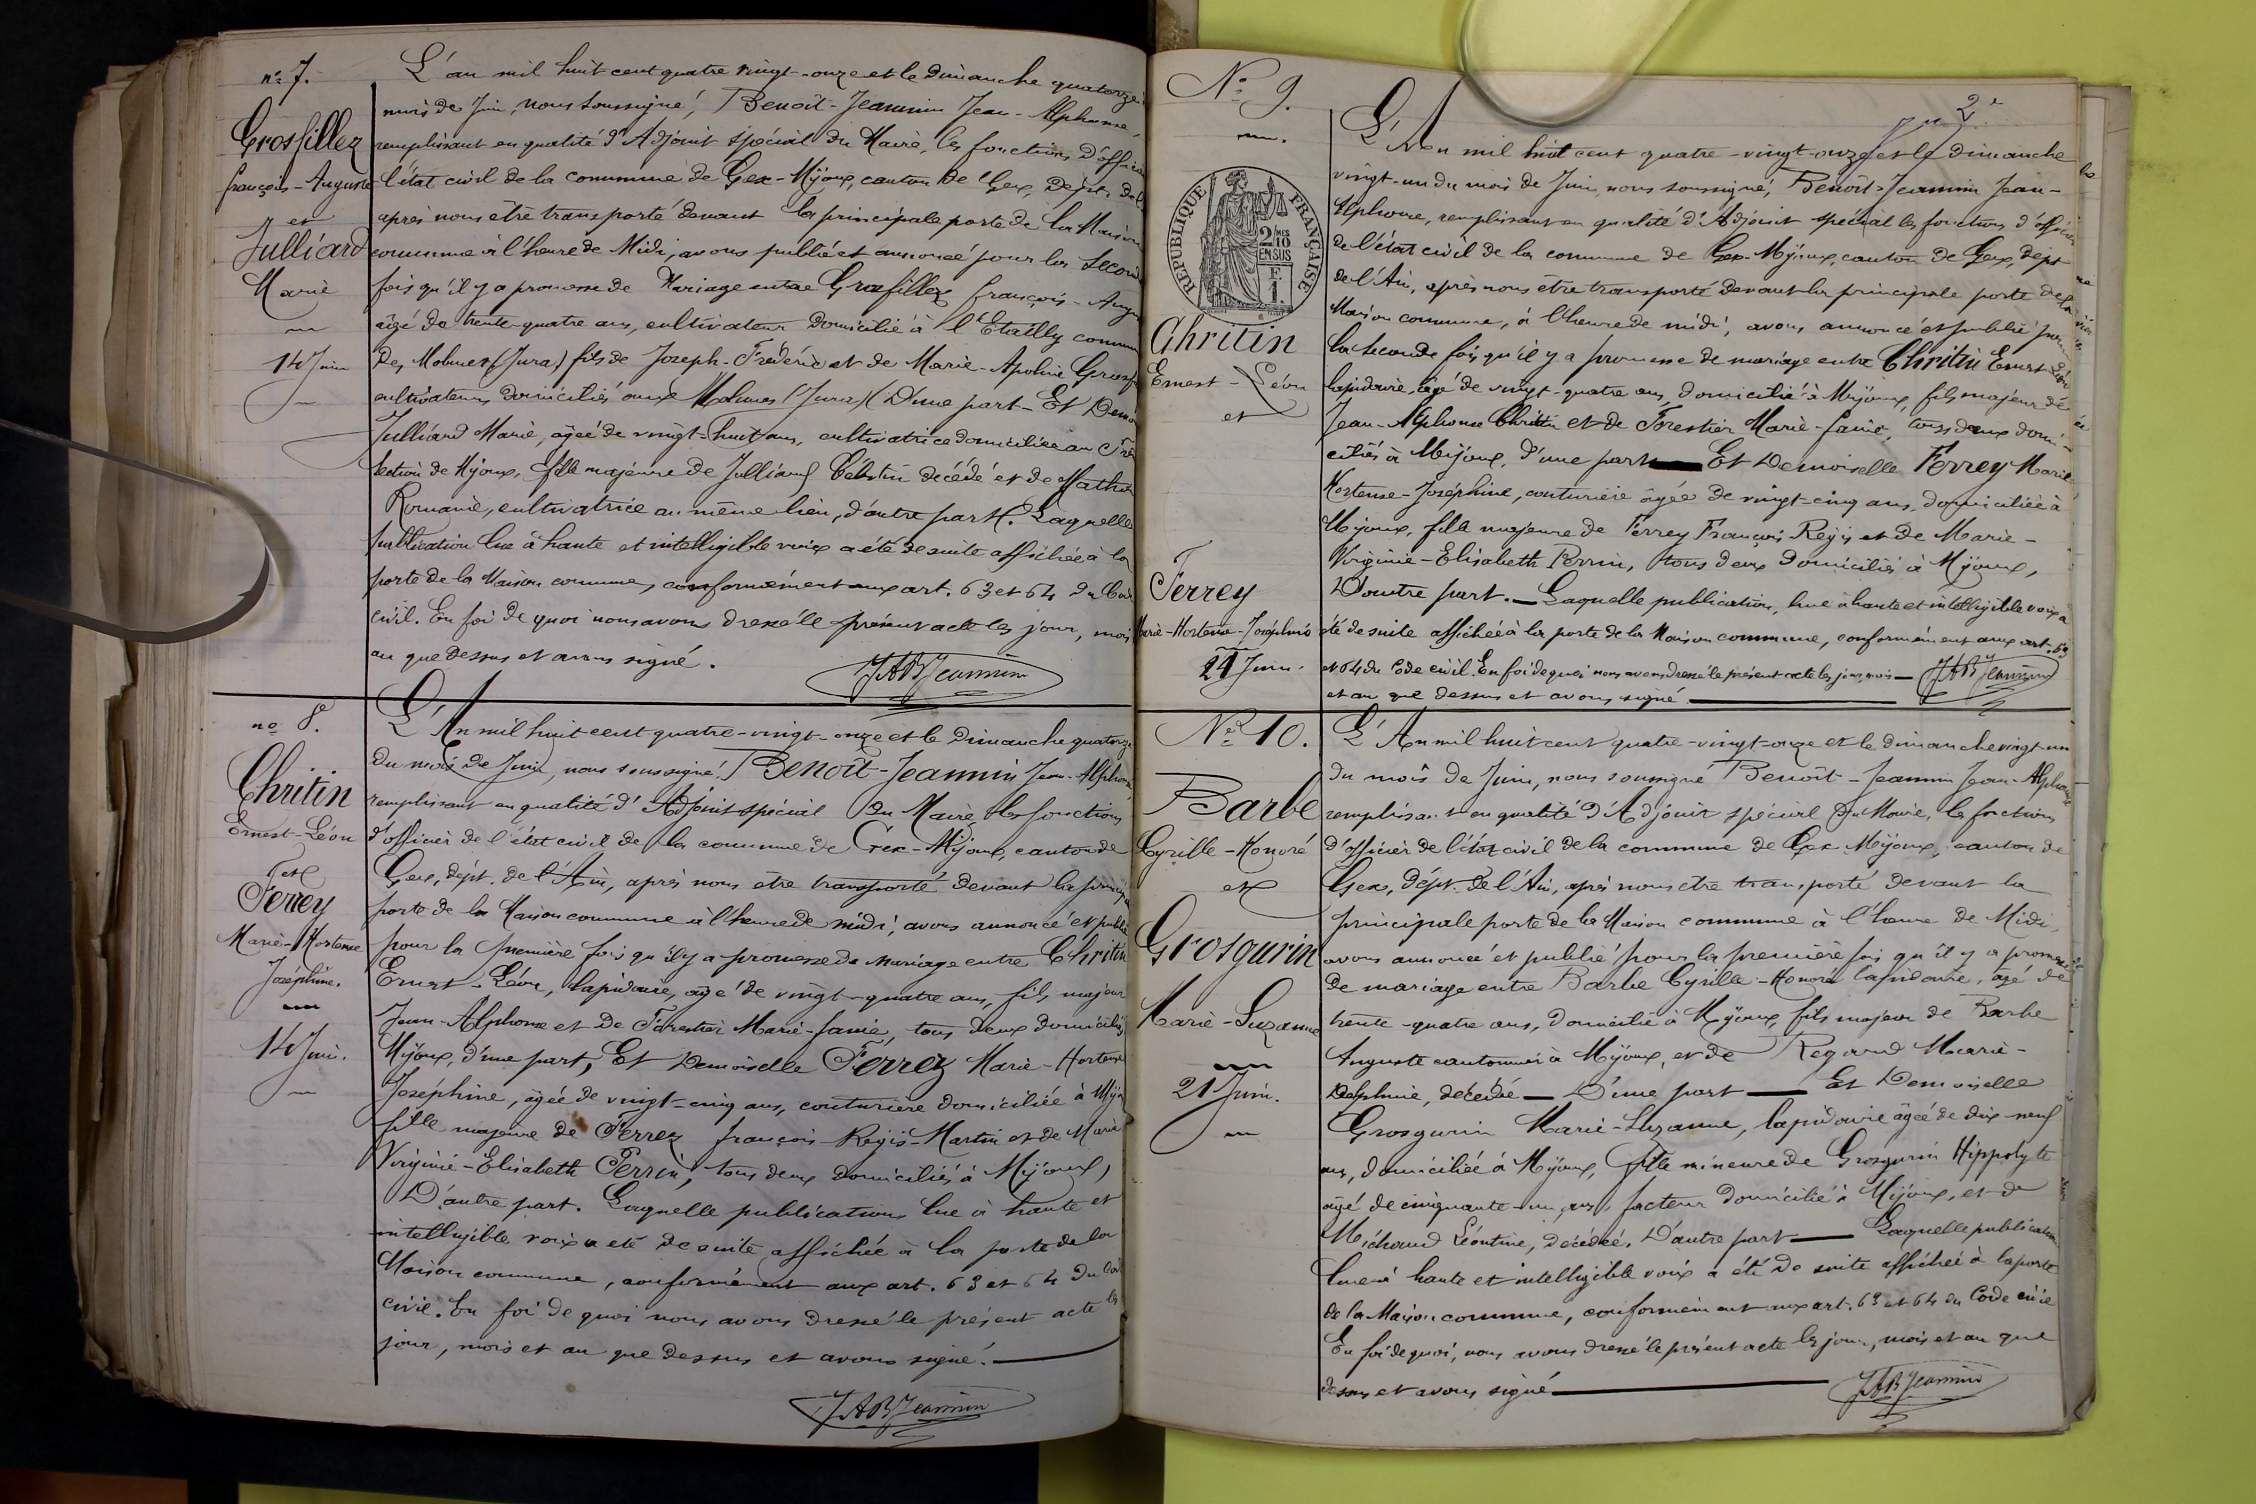 nº 7.
Grosfillez
françois-Auguste
et
Julliard
Marie
14 Juin
L'an mil huit cent quatre vingt-onze et le Dimanche quatorze
mois de Juin, nous soussigné, Benoît-Jeannin Jean-Alphonse,
remplissant en qualité d'Adjoint spécial du Maire, les fonctions d'officier
l'état civil de la commune de Gex-Mijoux, canton de Gex, dépt. de l'
après nous être transporté devant la principale porte de la Maison
commune à l'heure de Midi, avons publié et annoncé pour la seconde
fois qu'il y a promesse de Mariage entre Grosfillez françois-Augu
âgé de trente-quatre ans, cultivateur domicilié à l'Etailly commune
des Molunes (Jura) fils de Joseph-Frédéric et de Marie-Apoline Grosf
cultivateurs domiciliés aux Molunes (Jura) D'une part - Et Demo
Julliard Marie, âgée de vingt-huit ans, cultivatrice domiciliée au
section de Mijoux, fille majeure de Julliard Célestin décédé et de
Romanie, cultivatrice au même lieu, d'autre part. Laquelle
publication lue à haute et intelligible voix a été de suite affichée à la
porte de la Maison commune, conformément aux art. 63 et 64 du Code
civil. En foi de quoi nous avons dressé le présent acte les jour, mois
an que dessus et avons signé.
JABJeannin
nº 8.
Chritin
Ernest-Léon
et
Ferrey
Marie-Hortense
Joséphine.
14 Juin.
L'An mil huit cent quatre-vingt-onze et le Dimanche quatorze
du mois de Juin, nous soussigné, Benoît-Jeannin Jean-Alphonse,
remplissant en qualité d'Adjoint spécial du Maire, les fonctions
d'officier de l'état civil de la commune de Gex-Mijoux, canton de
Gex, dépt. de l'Ain, après nous être transporté devant la principa
porte de la Maison commune à l'heure de midi, avons annoncé et publié
pour la première fois qu'il y a promesse de mariage entre Chritin
Ernest-Léon, lapidaire, âgé de vingt-quatre ans, fils majeur
Jean-Alphonse et de Forestier Marie-fanie, tous deux domiciliés
Mijoux, d'une part, Et Demoiselle Ferrez Marie-Hortense
Joséphine, âgée de vingt-cinq ans, couturière domiciliée à Mijou
fille majeure de Ferrez françois-Régis-Martin et de Marie
Virginie-Elisabeth Perrin, tous deux domiciliés à Mijoux,
D'autre part. Laquelle publication lue à haute et
intelligible voix a été de suite affichée à la porte de la
Maison commune, conformément aux art. 63 et 64 du Code
civil. En foi de quoi nous avons dressé le présent acte les
jour, mois et an que dessus et avons signé.
JABJeannin
Nº 9.
RÉPUBLIQUE FRANÇAISE
2/10 MES
EN SUS
1 F.
Chritin
Ernest-Léon
et
Ferrey
Marie-Hortense-Joséphine
21 Juin.
2e
L'An mil huit cent quatre-vingt-onze et le dimanche
vingt-un du mois de Juin, nous soussigné, Benoît-Jeannin Jean-
Alphonse, remplissant en qualité d'Adjoint spécial les fonctions d'officier
de l'état civil de la commune de Gex-Mijoux, canton de Gex, dépt
de l'Ain, après nous être transporté devant la principale porte de la
Maison commune, à l'heure de midi, avons annoncé et publié pour
la seconde fois qu'il y a promesse de mariage entre Chritin Ernest Léon
lapidaire, âgé de vingt-quatre ans, domicilié à Mijoux, fils majeur de
Jean-Alphonse Chritin et de Forestier Marie-fanie, tous deux domi-
ciliés à Mijoux, d'une part Et Demoiselle Ferrey Marie
Hortense-Joséphine, couturière âgée de vingt-cinq ans, domiciliée à
Mijoux, fille majeure de Ferrey François Régis et de Marie-
Virginie-Elisabeth Perrin, tous deux domiciliés à Mijoux,
D'autre part. Laquelle publication, lue à haute et intelligible voix a
été de suite affichée à la porte de la Maison commune, conformément aux art. 63
et 64 du Code civil. En foi de quoi nous avons dressé le présent acte les jour, mois
et an que dessus et avons signé
JABJeannin
Nº 10.
Barbe
Cyrille-Honoré
et
Grosgurin
Marie-Suzanne
21 Juin.
L'An mil huit cent quatre-vingt-onze et le dimanche vingt-un
du mois de Juin, nous soussigné Benoît-Jeannin Jean-Alphonse
remplissant en qualité d'Adjoint spécial du Maire, les fonctions
d'officier de l'état civil de la commune de Gex-Mijoux, canton de
Gex, dépt. de l'Ain, après nous être transporté devant la
principale porte de la Maison commune à l'heure de Midi,
avons annoncé et publié pour la première fois qu'il y a promesse
de mariage entre Barbe Cyrille-Honoré lapidaire, âgé de
trente-quatre ans, domicilié à Mijoux, fils majeur de Barbe
Auguste cantonnier à Mijoux, et de Regard Marie-
Delphine, décédée D'une part Et Demoiselle
Grosgurin Marie-Suzanne, lapidaire âgée de dix-neuf
ans, domiciliée à Mijoux, fille mineure de Grosgurin Hippolyte
âgé de cinquante-un ans, facteur domicilié à Mijoux, et de
Michaud Léontine, décédée, D'autre part Laquelle publication
lue à haute et intelligible voix a été de suite affichée à la porte
de la Maison commune, conformément aux art. 63 et 64 du Code civil
En foi de quoi, nous avons dressé le présent acte les jour, mois et an que
dessus et avons signé
JABJeannin